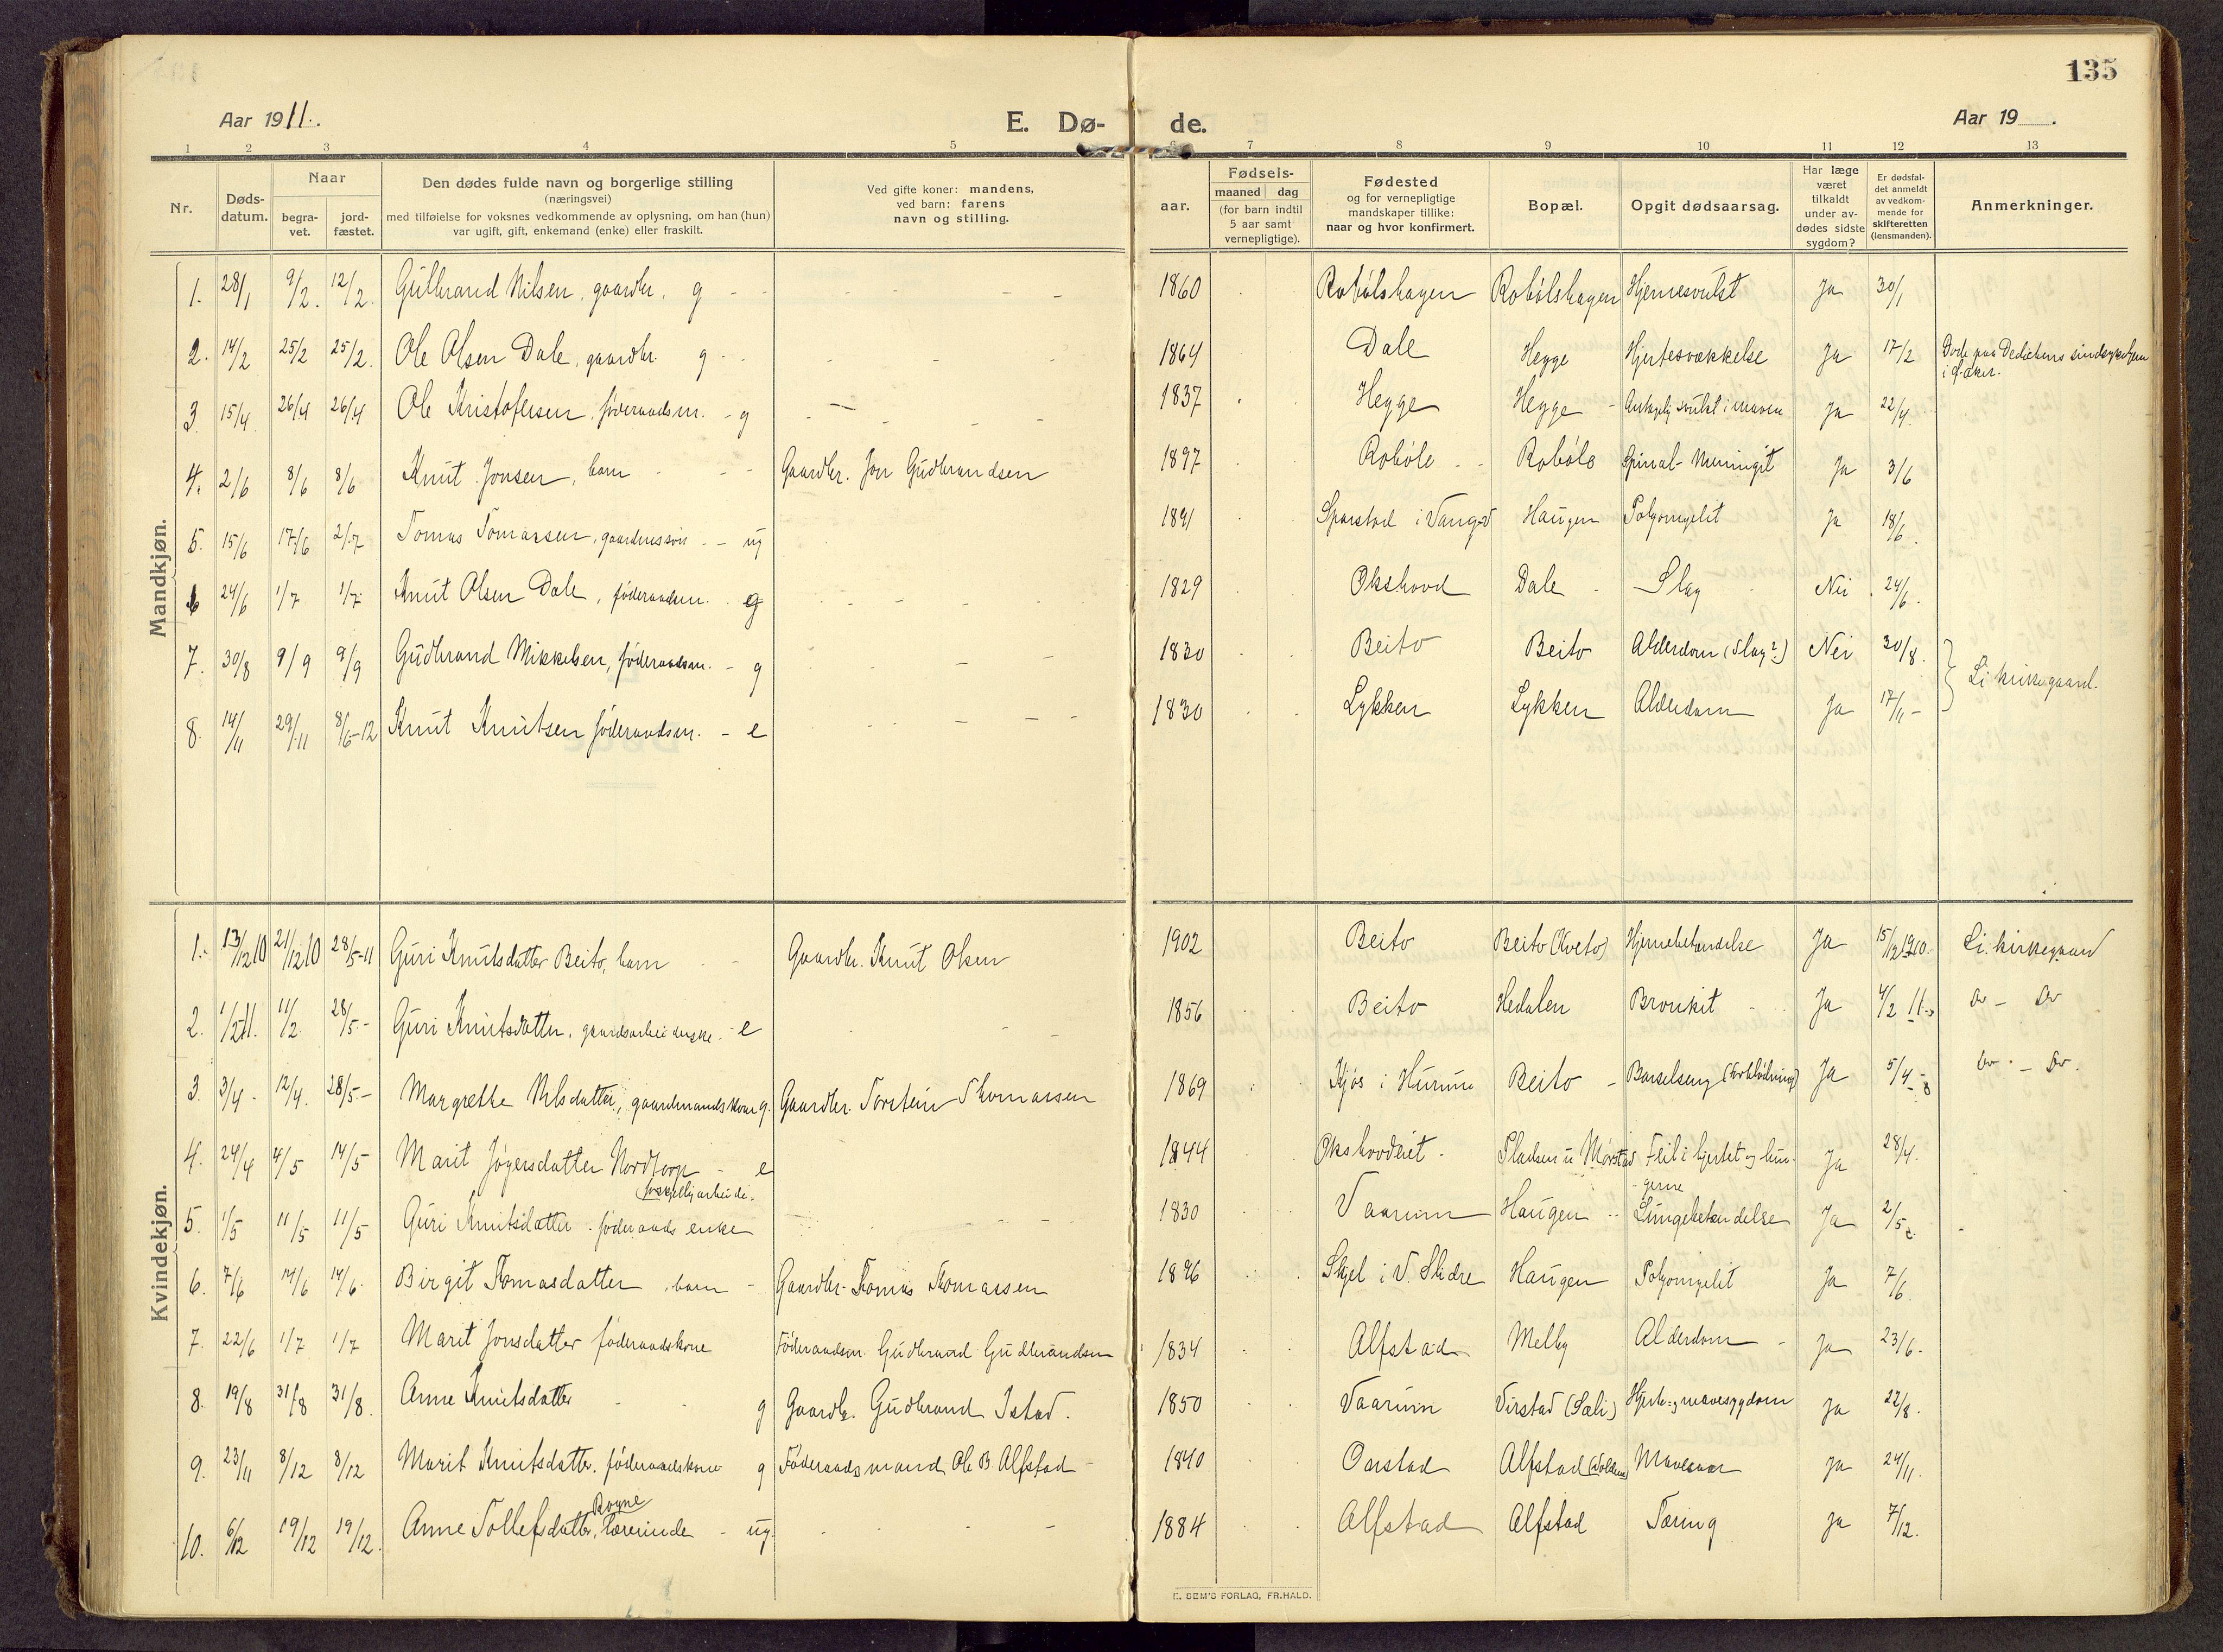 135
Aar 1911.
E. Dø-
de.
Aar 19 .
1 2 3 4 5 6 7 8 9 10 11 12 13
Nr.
Døds-
datum.
Naar
begra-
vet.
jord-
fæstet.
Den dødes fulde navn og borgerlige stilling
(næringsvei)
med tilføielse for voksnes vedkommende av oplysning, om han (hun)
var ugift, gift, enkemand (enke) eller fraskilt.
Ved gifte koner: mandens,
ved barn: farens
navn og stilling.
Fødsels-
aar.
maaned dag
(for barn indtil
5 aar samt
vernepligtige).
Fødested
og for vernepligtige
mandskaper tillike:
naar og hvor konfirmert.
Bopæl.
Opgit dødsaarsag.
Har læge
været
tilkaldt
under av-
dødes sidste
sygdom?
Er dødsfal-
det anmeldt
av vedkom-
mende for
skifteretten
(lensmanden).
Anmerkninger.
Mandkjøn.
1. 28/1 9/2. 12/2. Gulbrand Nilsen, gaardbr. g - - 1860 Robølshagen Robølshagen Hjernesvulst Ja 30/1
2. 14/2 25/2 25/2. Ole Olsen Dale, gaardbr. g - - 1864 Dale Hegge Hjertesvækkelse Ja 17/2 Døde paa Dedichens sindsykehjem
i Ø. Aker.
3. 15/4 26/4 26/4 Ole Kristofersen, føderaadsm. - g 1837 Hegge Hegge - svulst i maven Ja 22/4.
4. 2/6 8/6 8/6 Knut Jonsen, barn - - Gaardbr. Jon Gudbrandsen 1897 Robøle - - Robøle Spinal-Meningit Ja 3/6
5. 15/6 17/6 2/7 Tomas Tomassen, gaardmssøn - - ug 1891 Sparstad i Vang Haugen Polyomyelit Ja 18/6.
6 24/6 1/7 1/7 Knut Olsen Dale, føderaadsm. g 1829 Okshovd Dale - Slag Nei 24/6.
7. 30/8 9/9 9/9 Gudbrand Mikkelsen, føderaadsm. - g 1830 Beito Beito Alderdom (Slag?) Nei 30/8. } Li kirkegaard.
8. 14/11 29/11 8/6-12 Knut Knutsen føderaadsm. - e 1830 Lykken Lykken Alderdom Ja 17/11 -
Kvindekjøn.
1. 13/12 10 21/12 10 28/5-11 Guri Knutsdatter Beito, barn - - Gaardbr. Knut Olsen 1902 Beito Beito (Kveto) Hjernebetændelse Ja 15/12 1910. Li. kirkegaard
2. 1/2 11. 11/2. 28/5.- Guri Knutsdatter, gaardsarbeiderske - e 1856 Beito Hedalen Bronkit - - Ja 4/2 11. Do - Do
3. 3/4 - 12/4. 28/5.- Margrethe Nilsdatter, gaardmandskone g. Gaardbr. Torstein Thomassen 1869 Kjøs i Hurum Beito - Barselseng (Forblødning) Ja 5/4 - Do - Do.
4. 24/4 4/5 14/5 Marit Jøgersdatter Nordtorp - e 1844 Okshovdeiet. Pladsen u Mørstad Feil i hjertet og lun-
gerne Ja 28/4.
5. 1/5 11/5 11/5 Guri Knutsdatter. føderaads enke 1830 Vaarum Haugen - Lungebetændelse Ja 2/5
6. 7/6 14/6 14/6. Birgit Tomasdatter, barn - Gaardbr. Tomas Tomassen 1896 Skjel i V. Slidre Haugen Polyomyelit Ja 7/6.
7. 22/6 1/7 1/7 Marit Jonsdatter føderaadskone Føderaadsm. Gudbrand Gudbrandsen 1834 Alfstad Melby Alderdom - Ja 23/6.
8. 19/8 31/8 31/8. Anne Knutsdatter - - g Gaardbr. Gudbrand Istad. 1850 Vaarum Virstad (Sæli) Hjerte- og mavesygdom Ja 22/8.
9. 23/11 8/12 8/12 Marit Knutsdatter. føderaadskone g Føderaadsmand Ole B Alfstad - 1840 Onstad Alfstad Mavesaar Ja 24/11.
10. 6/12 19/12 19/12. Anne Tollefsdatter Rogne, lærerinde - ug. 1884 Alfstad Alfstad Tæring Ja 7/12.
E. SEM'S FORLAG, FR.HALD.